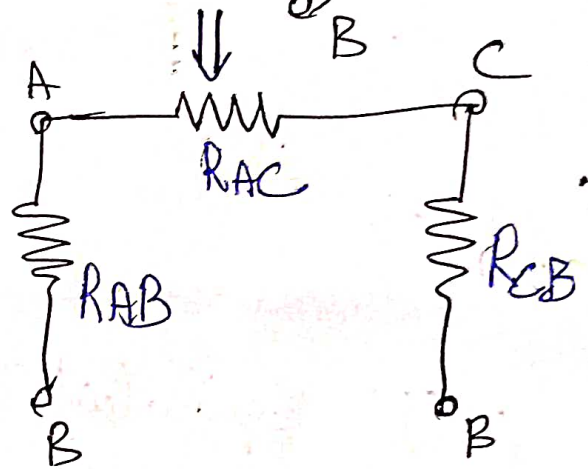 B
A
C
RAC
RAB
RCB
B
B